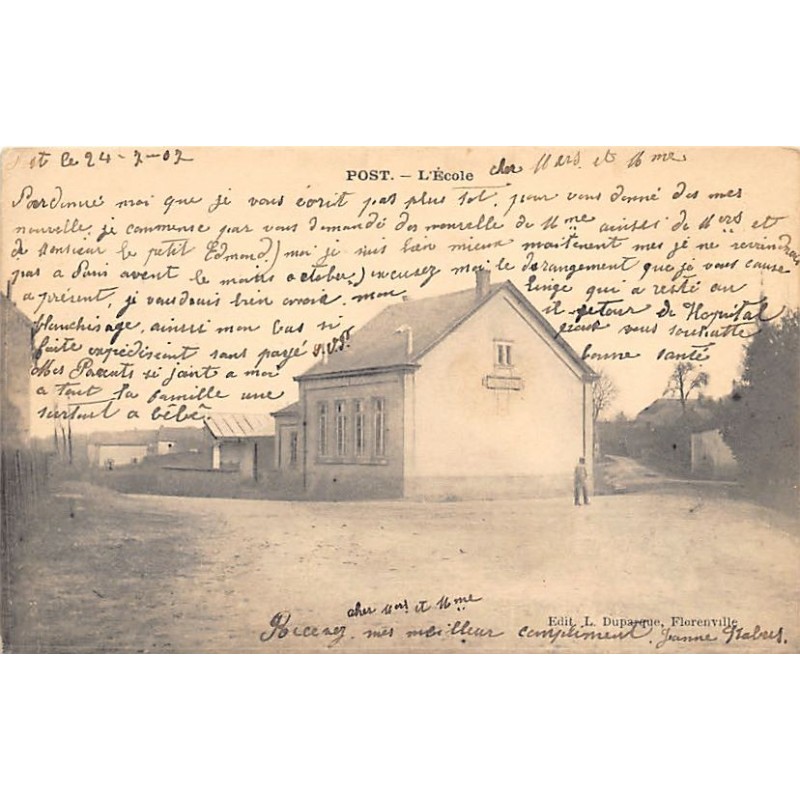 le 24-7-07
POST. – L'École
cher Mers. et Mme
Pardonné moi que je vous écrit pas plus tot, pour vous donné des mes
nouvelle, je commense par vous demandé des nouvelle de Mme ainsi de Mers et
de Monsieur le petit Edmond) moi je suis bien mieux maitenent mes je ne reviendrais
pas a Paris avent le moins octobre) excusez moi le derangement que je vous cause
a présent, je voudrais bien avoir, mon linge qui a resté au
blanchisage, ainsi mon bas si il retour de Hopital
faite expédiscent sans payé S.V.P. vous souhaitte
Mes Parents si joint a moi bonne santé
a tout la famille une
surtout a bébé.
cher Mers et Mme
Recevez, mes meilleur compliment, Jeanne
Edit. L. Duparque, Florenville